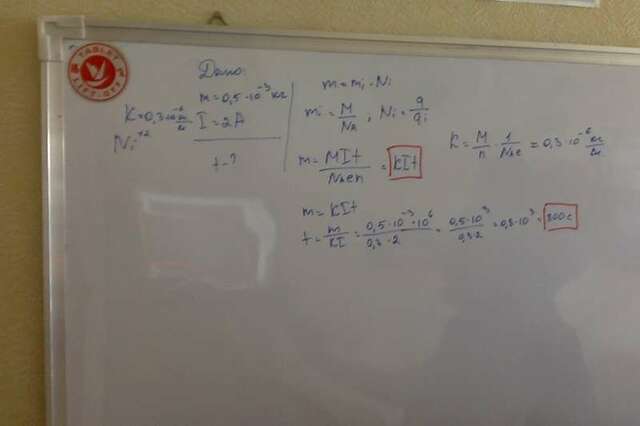 TABLET
LIFT-OFF
Дано:
m = 0,5·10⁻³ кг
K = 0,3·10⁻⁶ кг/Кл
I = 2A
Ni⁺²
t - ?
m = mᵢ·Nᵢ
mᵢ = M/Nₐ ; Nᵢ = q/qᵢ
m = MIt/Nₐen = KIt
K = M/n · 1/Nₐe = 0,3·10⁻⁶ кг/Кл
m = KIt
t = m/KI = 0,5·10⁻³·10⁶/0,3·2 = 0,5·10³/0,3·2 = 0,8·10³ = 800 c